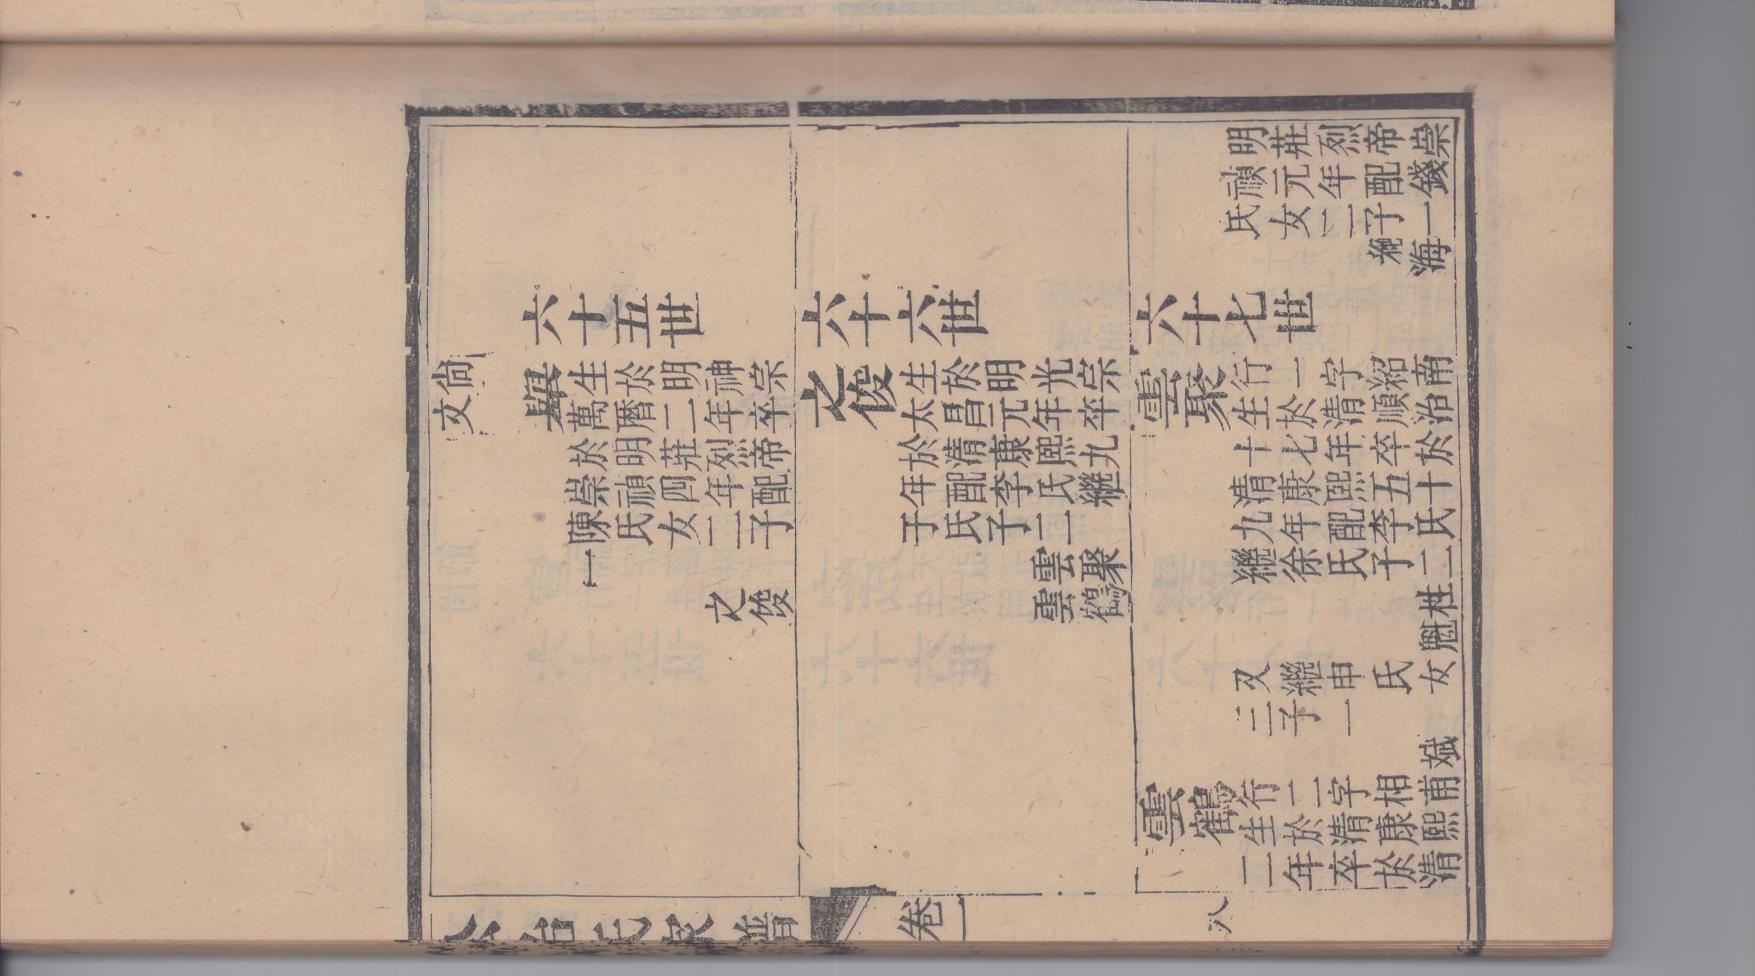 明莊烈帝崇
禎元年配錢
氏女二子一
繼海
六十五世
尙文
舉
生於明神宗
萬曆二年卒
於明莊烈帝
崇禎四年配
陳氏女二子
一
之俊
六十六世
之俊
生於明光宗
太昌元年卒
於清康熙九
年配李氏繼
于氏子二
雲聚
雲鶴
六十七世
雲聚
行一字紹南
生於清順治
十七年卒於
清康熙五十
九年配李氏
繼徐氏子二
魁柱
又繼申氏女
三子一
斌
雲鶴
行二字相甫
生於清康熙
二年卒於清
氏家譜
卷一
八